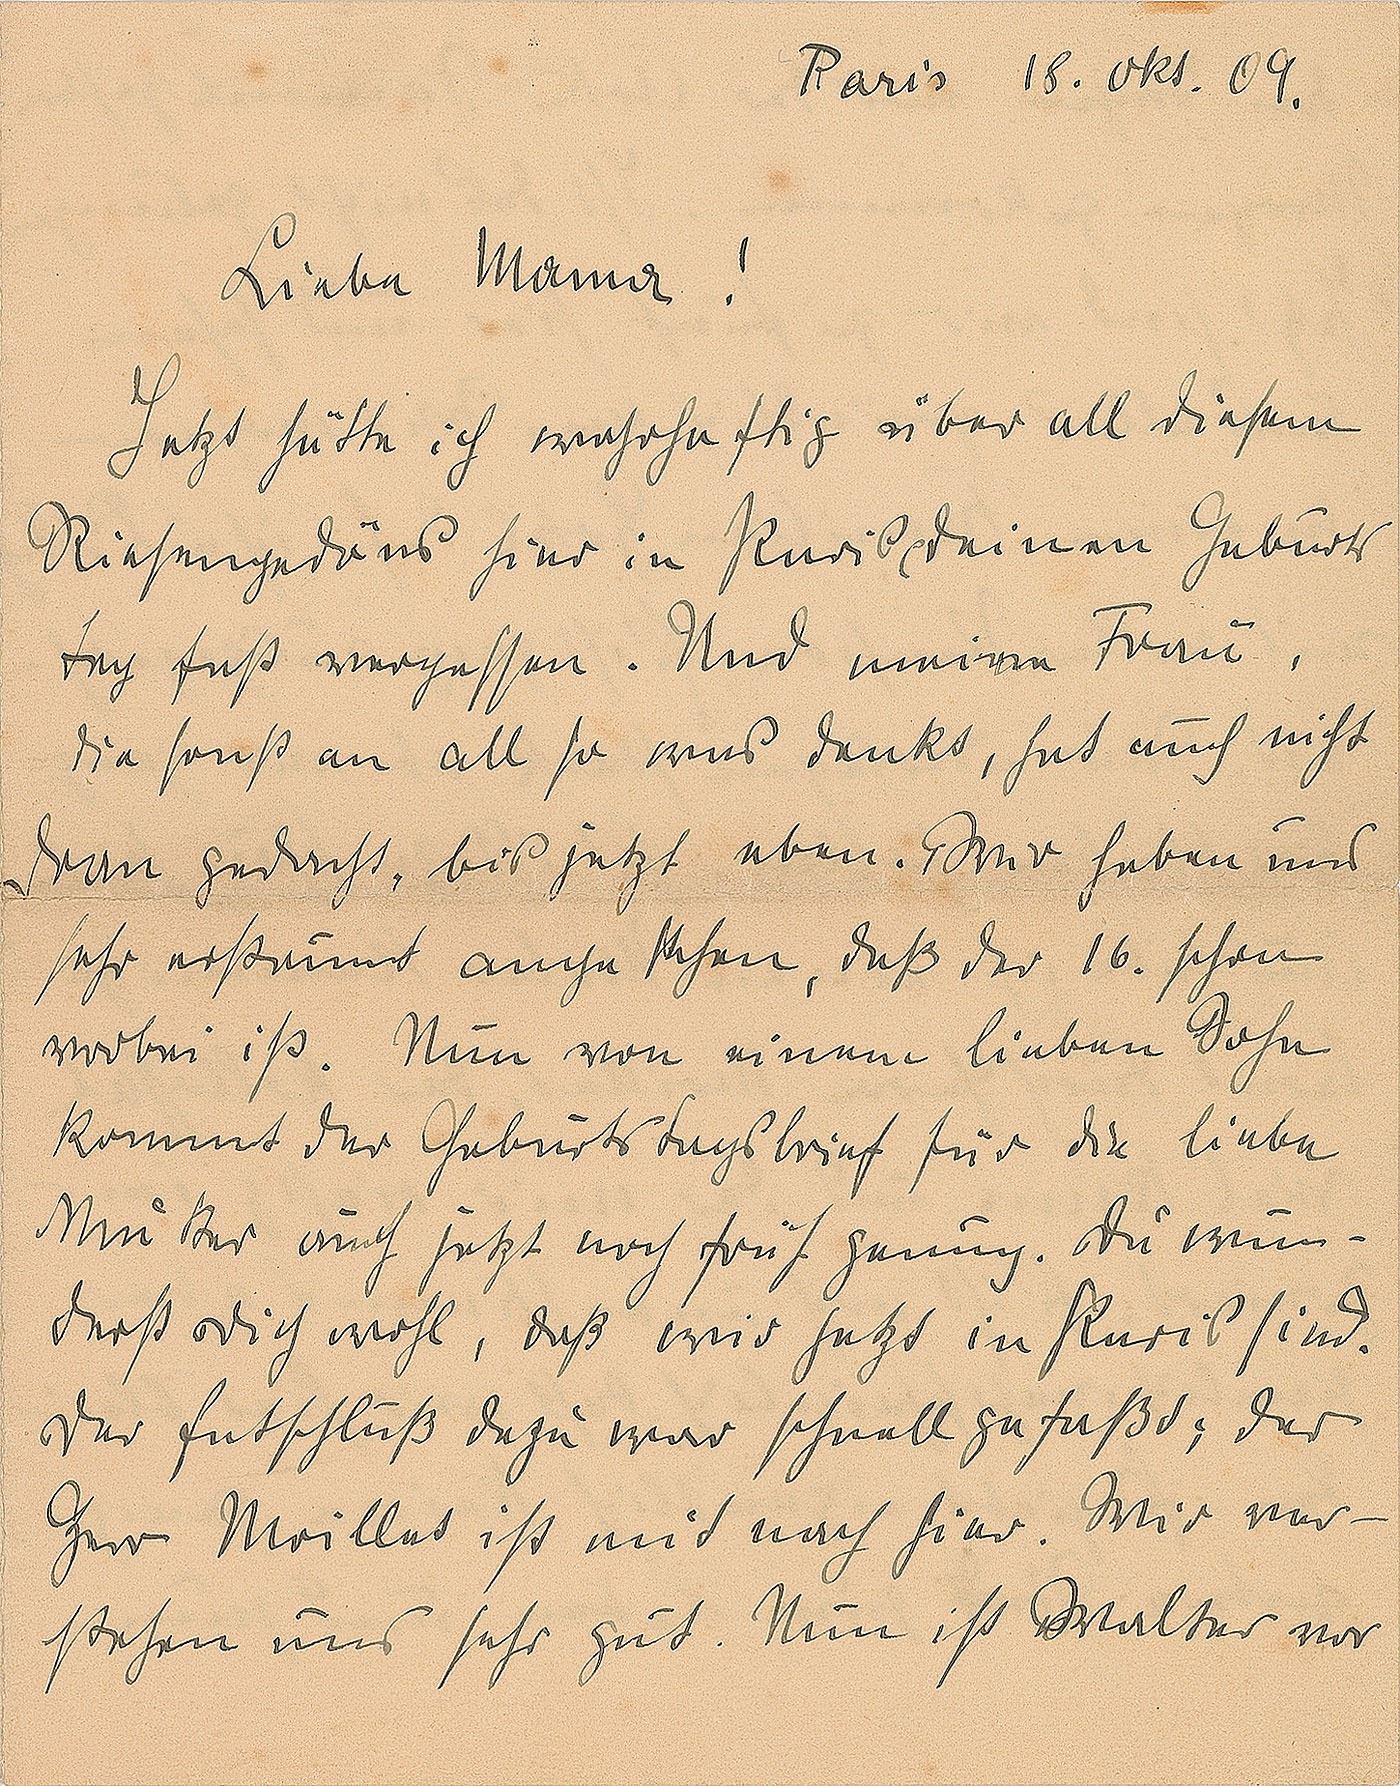 Paris 18. Okt. 09.
Liebe Mama !
Jetzt hätte ich wahrhaftig über all diesem
Riesengedöns hier in Paris deinen Geburts
tag fast vergessen. Und meine Frau,
die sonst an all so was denkt, hat auch nicht
dran gedacht, bis jetzt eben. Wir haben uns
sehr erstaunt angesehen, daß der 16. schon
vorbei ist. Nun von einem lieben Sohn
kommt der Geburtstagsbrief für die liebe
Mutter auch jetzt noch früh genug. Du wun-
derst Dich wohl, daß wir jetzt in Paris sind.
Der Entschluß dazu war schnell gefaßt; der
Herr Moilliet ist mit nach hier. Wir ver-
stehen uns sehr gut. Nun ist Walter vor